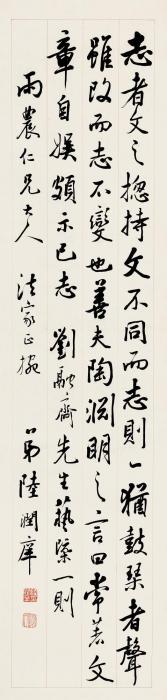 志者文之揔持文不同而志則一猶鼓琹者聲
雖改而志不變也善夫陶淵明之言曰常著文
章自娱頗示己志 劉融齋先生藝槩一則
雨農仁兄大人 法家正捥 弟陸潤庠